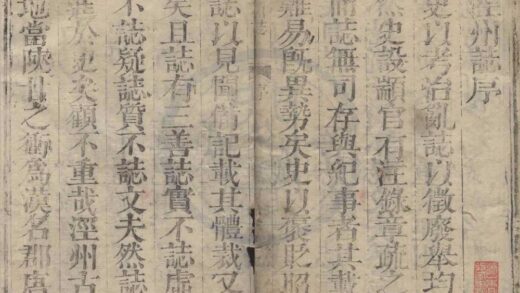 涇州誌序
史以考治亂誌以徵廢舉均
然史設顓官有注錄章疏之
而誌無可存與紀事者其載
難易旣異勢矣史以褒貶昭
誌以見聞備記載其體裁又
矣且誌有三善誌實不誌虛
不誌疑誌質不誌文夫然誌
於史矣顧不重哉涇州古
地當陝甘之衝爲漢名郡唐